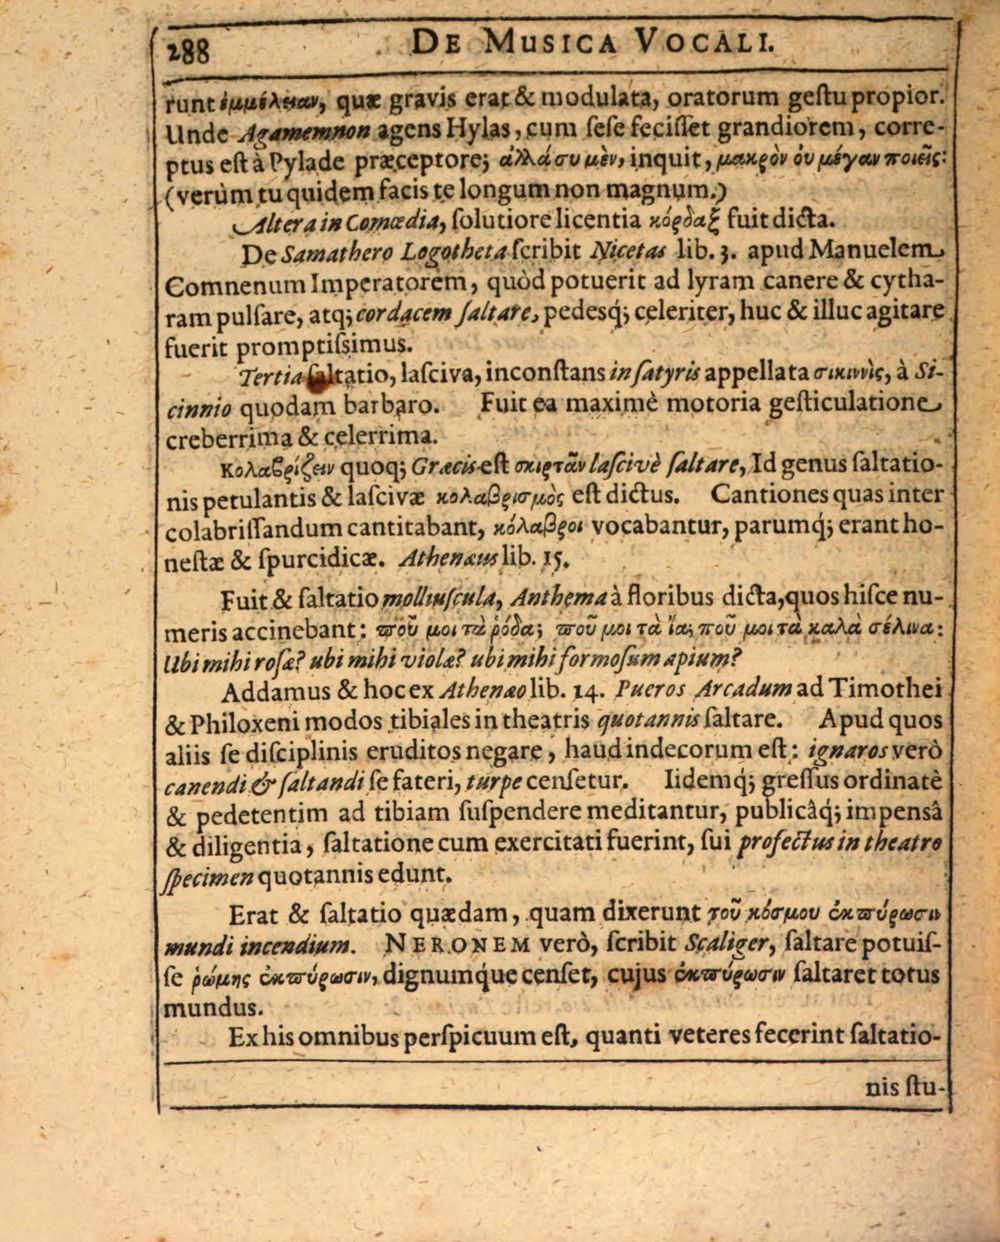 288 DE MUSICA VOCALI.
runt ἐμμέλειαν, quæ gravis erat & modulata, oratorum geſtu propior.
Unde Agamemnon agens Hylas, cum ſeſe feciſſet grandiorem, corre-
ptus eſt à Pylade præceptore; ἀλλὰ συ μὲν, inquit, μακρὸν ȣ̓ μέγαν ποιεῖς:
(verùm tu quidem facis te longum non magnum.)
Altera in Comœdia, ſolutiore licentia κόρδαξ fuit dicta.
De Samathero Logotheta ſcribit Nicetas lib. 3. apud Manuelem
Comnenum Imperatorem, quòd potuerit ad lyram canere & cytha-
ram pulſare, atq; cordacem ſaltare, pedesq́; celeriter, huc & illuc agitare
fuerit promptiſsimus.
Tertia ſaltatio, laſciva, inconſtans in ſatyris appellata σικιννὶς, à Si-
cinnio quodam barbaro. Fuit ea maximè motoria geſticulatione
creberrima & celerrima.
Κολαβρίζειν quoq; Græcis eſt σκιρτᾶν laſcivè ſaltare, Id genus ſaltatio-
nis petulantis & laſcivæ κολαβρισμὸς eſt dictus. Cantiones quas inter
colabriſſandum cantitabant, κόλαβροι vocabantur, parumq́; erant ho-
neſtæ & ſpurcidicæ. Athenæus lib. 15.
Fuit & ſaltatio molliuſcula, Anthema à floribus dicta, quos hiſce nu-
meris accinebant: ποῦ μοι τὰ ῥόδα; ποῦ μοι τὰ ἴα; ποῦ μοι τὰ καλὰ σέλινα:
Ubi mihi roſæ? ubi mihi violæ? ubi mihi formoſum apium?
Addamus & hoc ex Athenæo lib. 14. Pueros Arcadum ad Timothei
& Philoxeni modos tibiales in theatris quotannis ſaltare. Apud quos
aliis ſe diſciplinis eruditos negare, haud indecorum eſt: ignaros verò
canendi & ſaltandi ſe fateri, turpe cenſetur. Iidemq́; greſſus ordinatè
& pedetentim ad tibiam ſuſpendere meditantur, publicâq́; impensâ
& diligentia, ſaltatione cum exercitati fuerint, ſui profectus in theatro
ſpecimen quotannis edunt.
Erat & ſaltatio quædam, quam dixerunt τοῦ κόσμου ἐκπύρωσιν
mundi incendium. NERONEM verò, ſcribit Scaliger, ſaltare potuiſ-
ſe ῥώμης ἐκπύρωσιν, dignumque cenſet, cujus ἐκπύρωσιν ſaltaret totus
mundus.
Ex his omnibus perſpicuum eſt, quanti veteres fecerint ſaltatio-
nis ſtu-